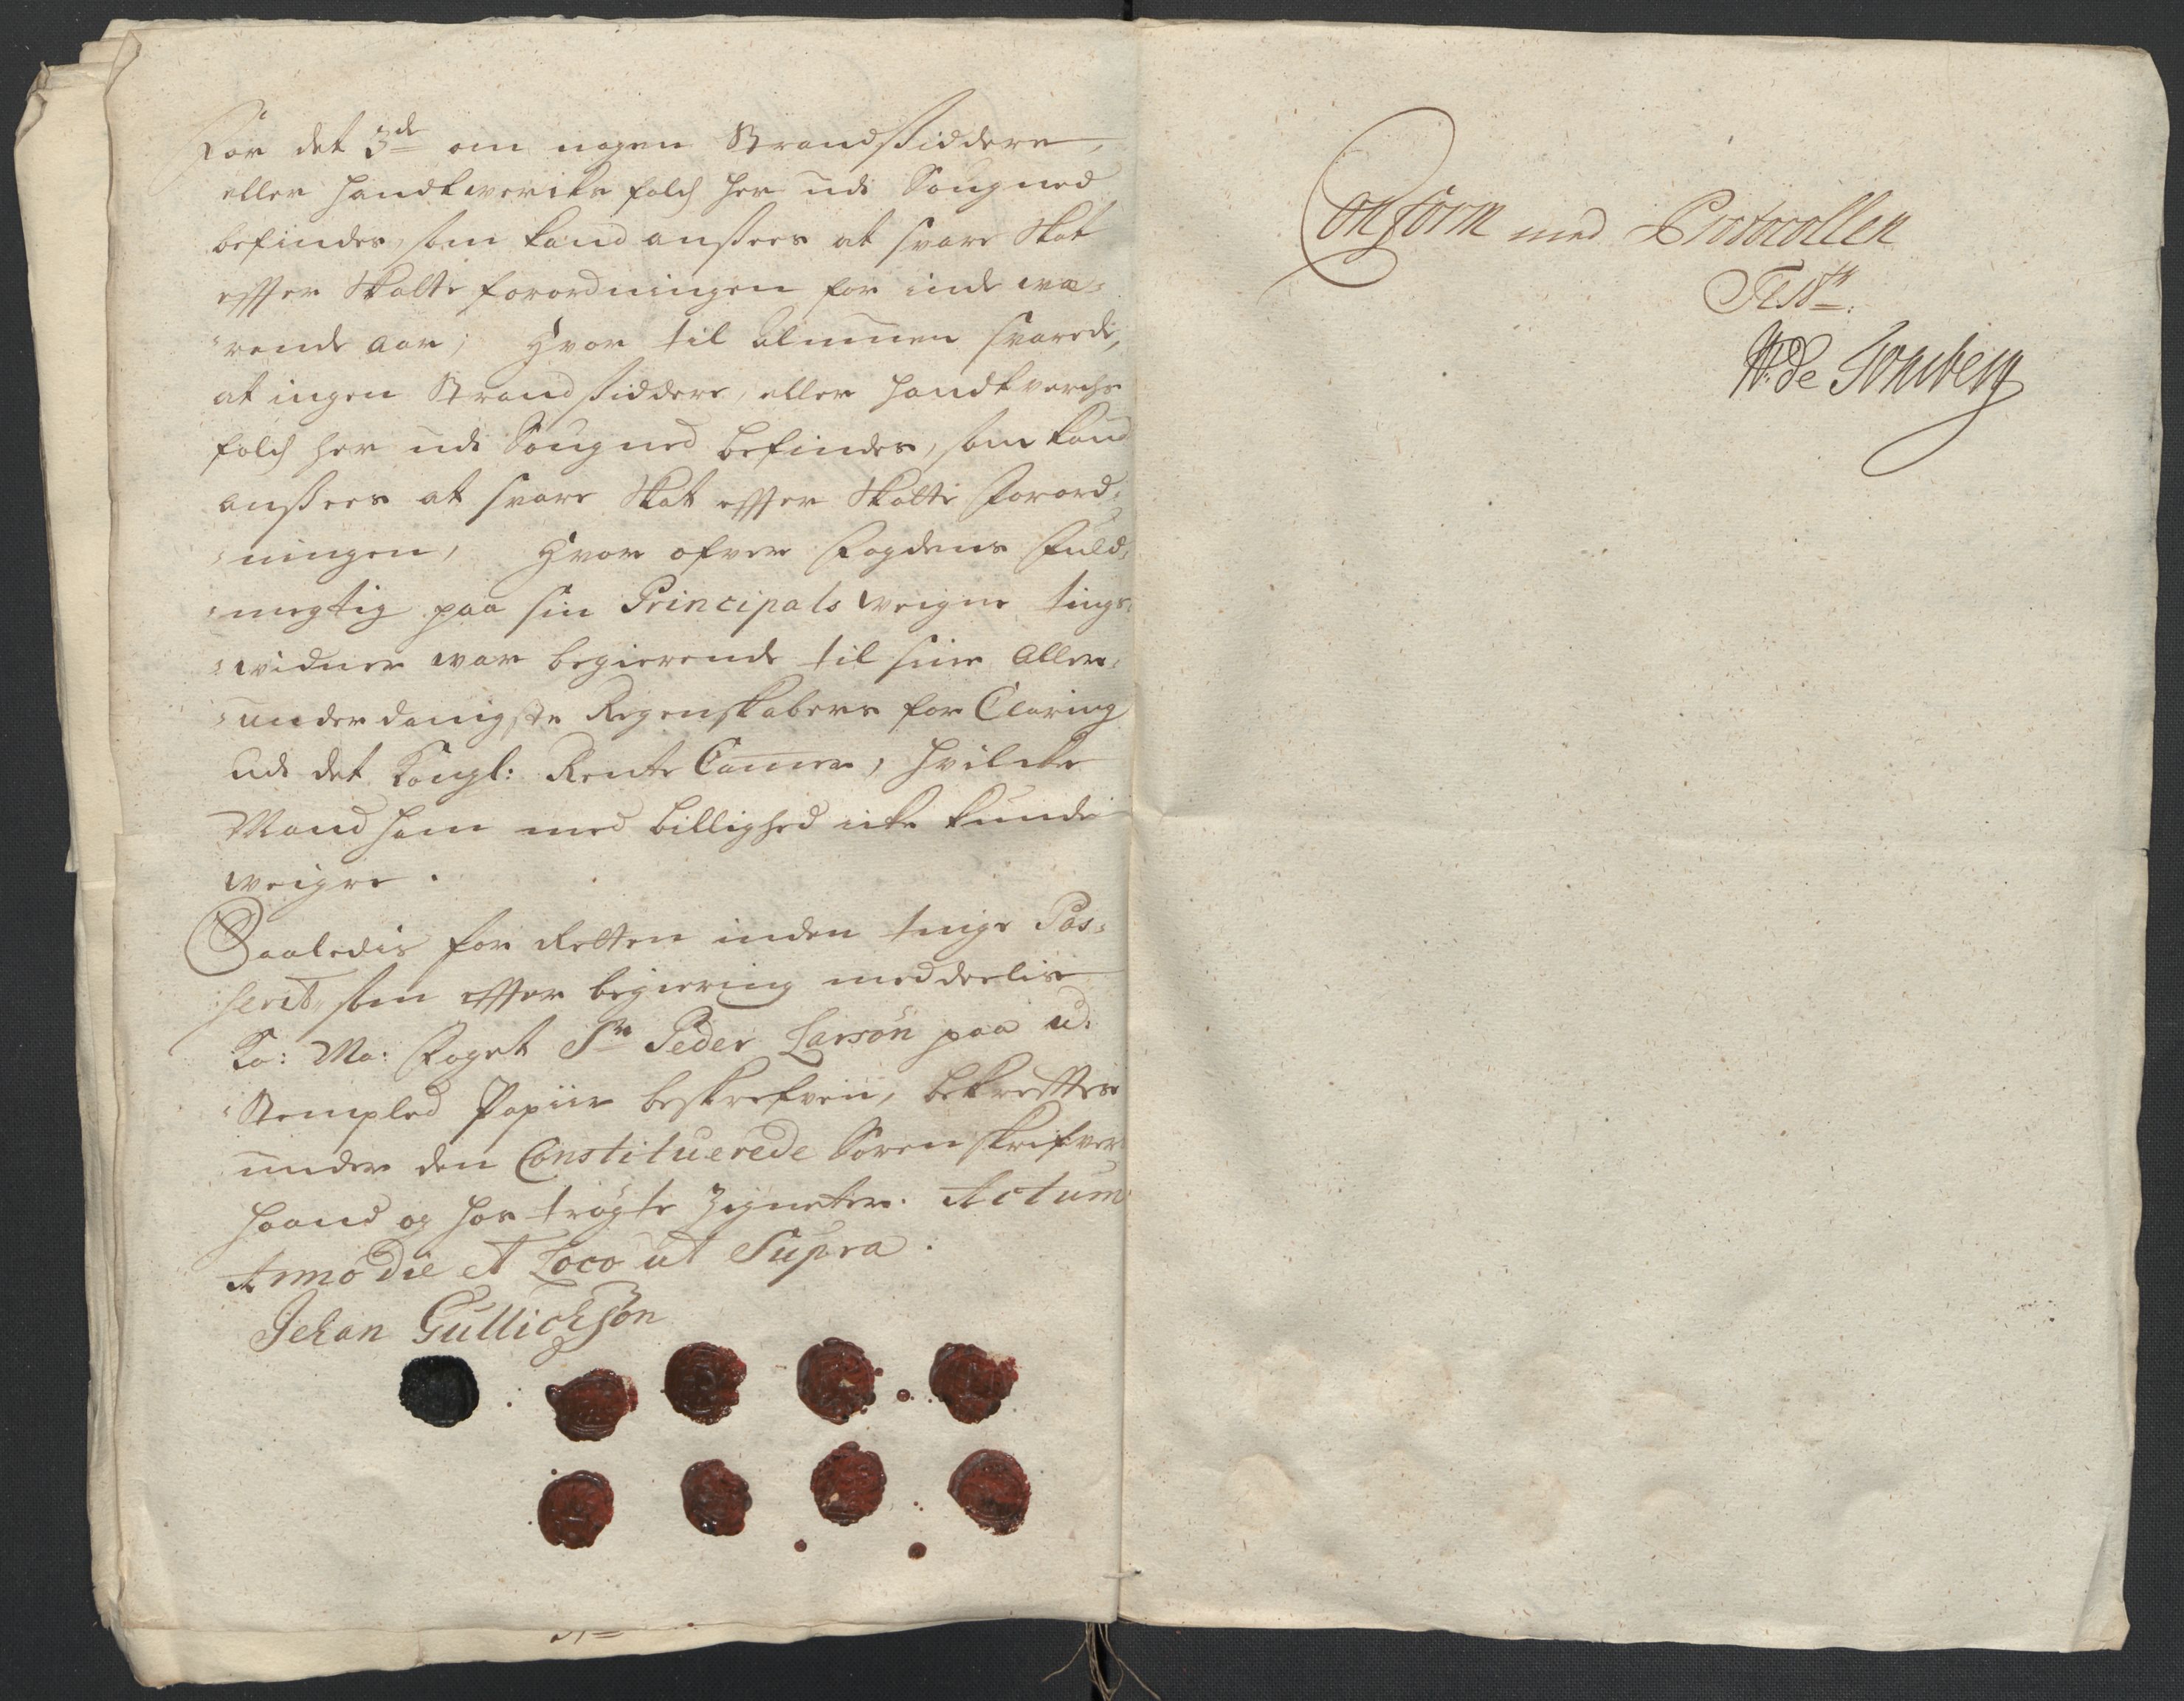 For det 3de om nogen Strandsiddere,
eller Handtwercks folch her udi Sougned
befindes, som kand ansees at svare Skat
effter Skatte forordningen for inde wæ-
rende aar; Hvor til Almuen svarede,
at ingen Strandsiddere, eller Handtverchs
folch her udi Sougned befindes, som kand
ansees at svare Skat effter Skatte Forord-
ningen, Hvor ofver Fogdens Fuld-
megtig paa sin Principals weigne tings-
widner war begierende til sine Aller-
underdanigste Regenskabers for Claring
udi det Kongl: Rente Camer, hvilcke
Mand ham med billighed icke kunde
weigre.
Saaledis for Retten inden tinge Pas-
serit, som effter begiering meddeelis
Ko: Ma: Foget Sr Peder Larsön paa u-
Stempled Papiir beskrefven, bekreffter
under den Constituerede Sorenskrifver
haand og hos trögte Zigneter. Actum
Anno Die et Loco ut Supra.
Jehan Gullichsön
Conform med Protocollen
Test:
W: de Tonsberg